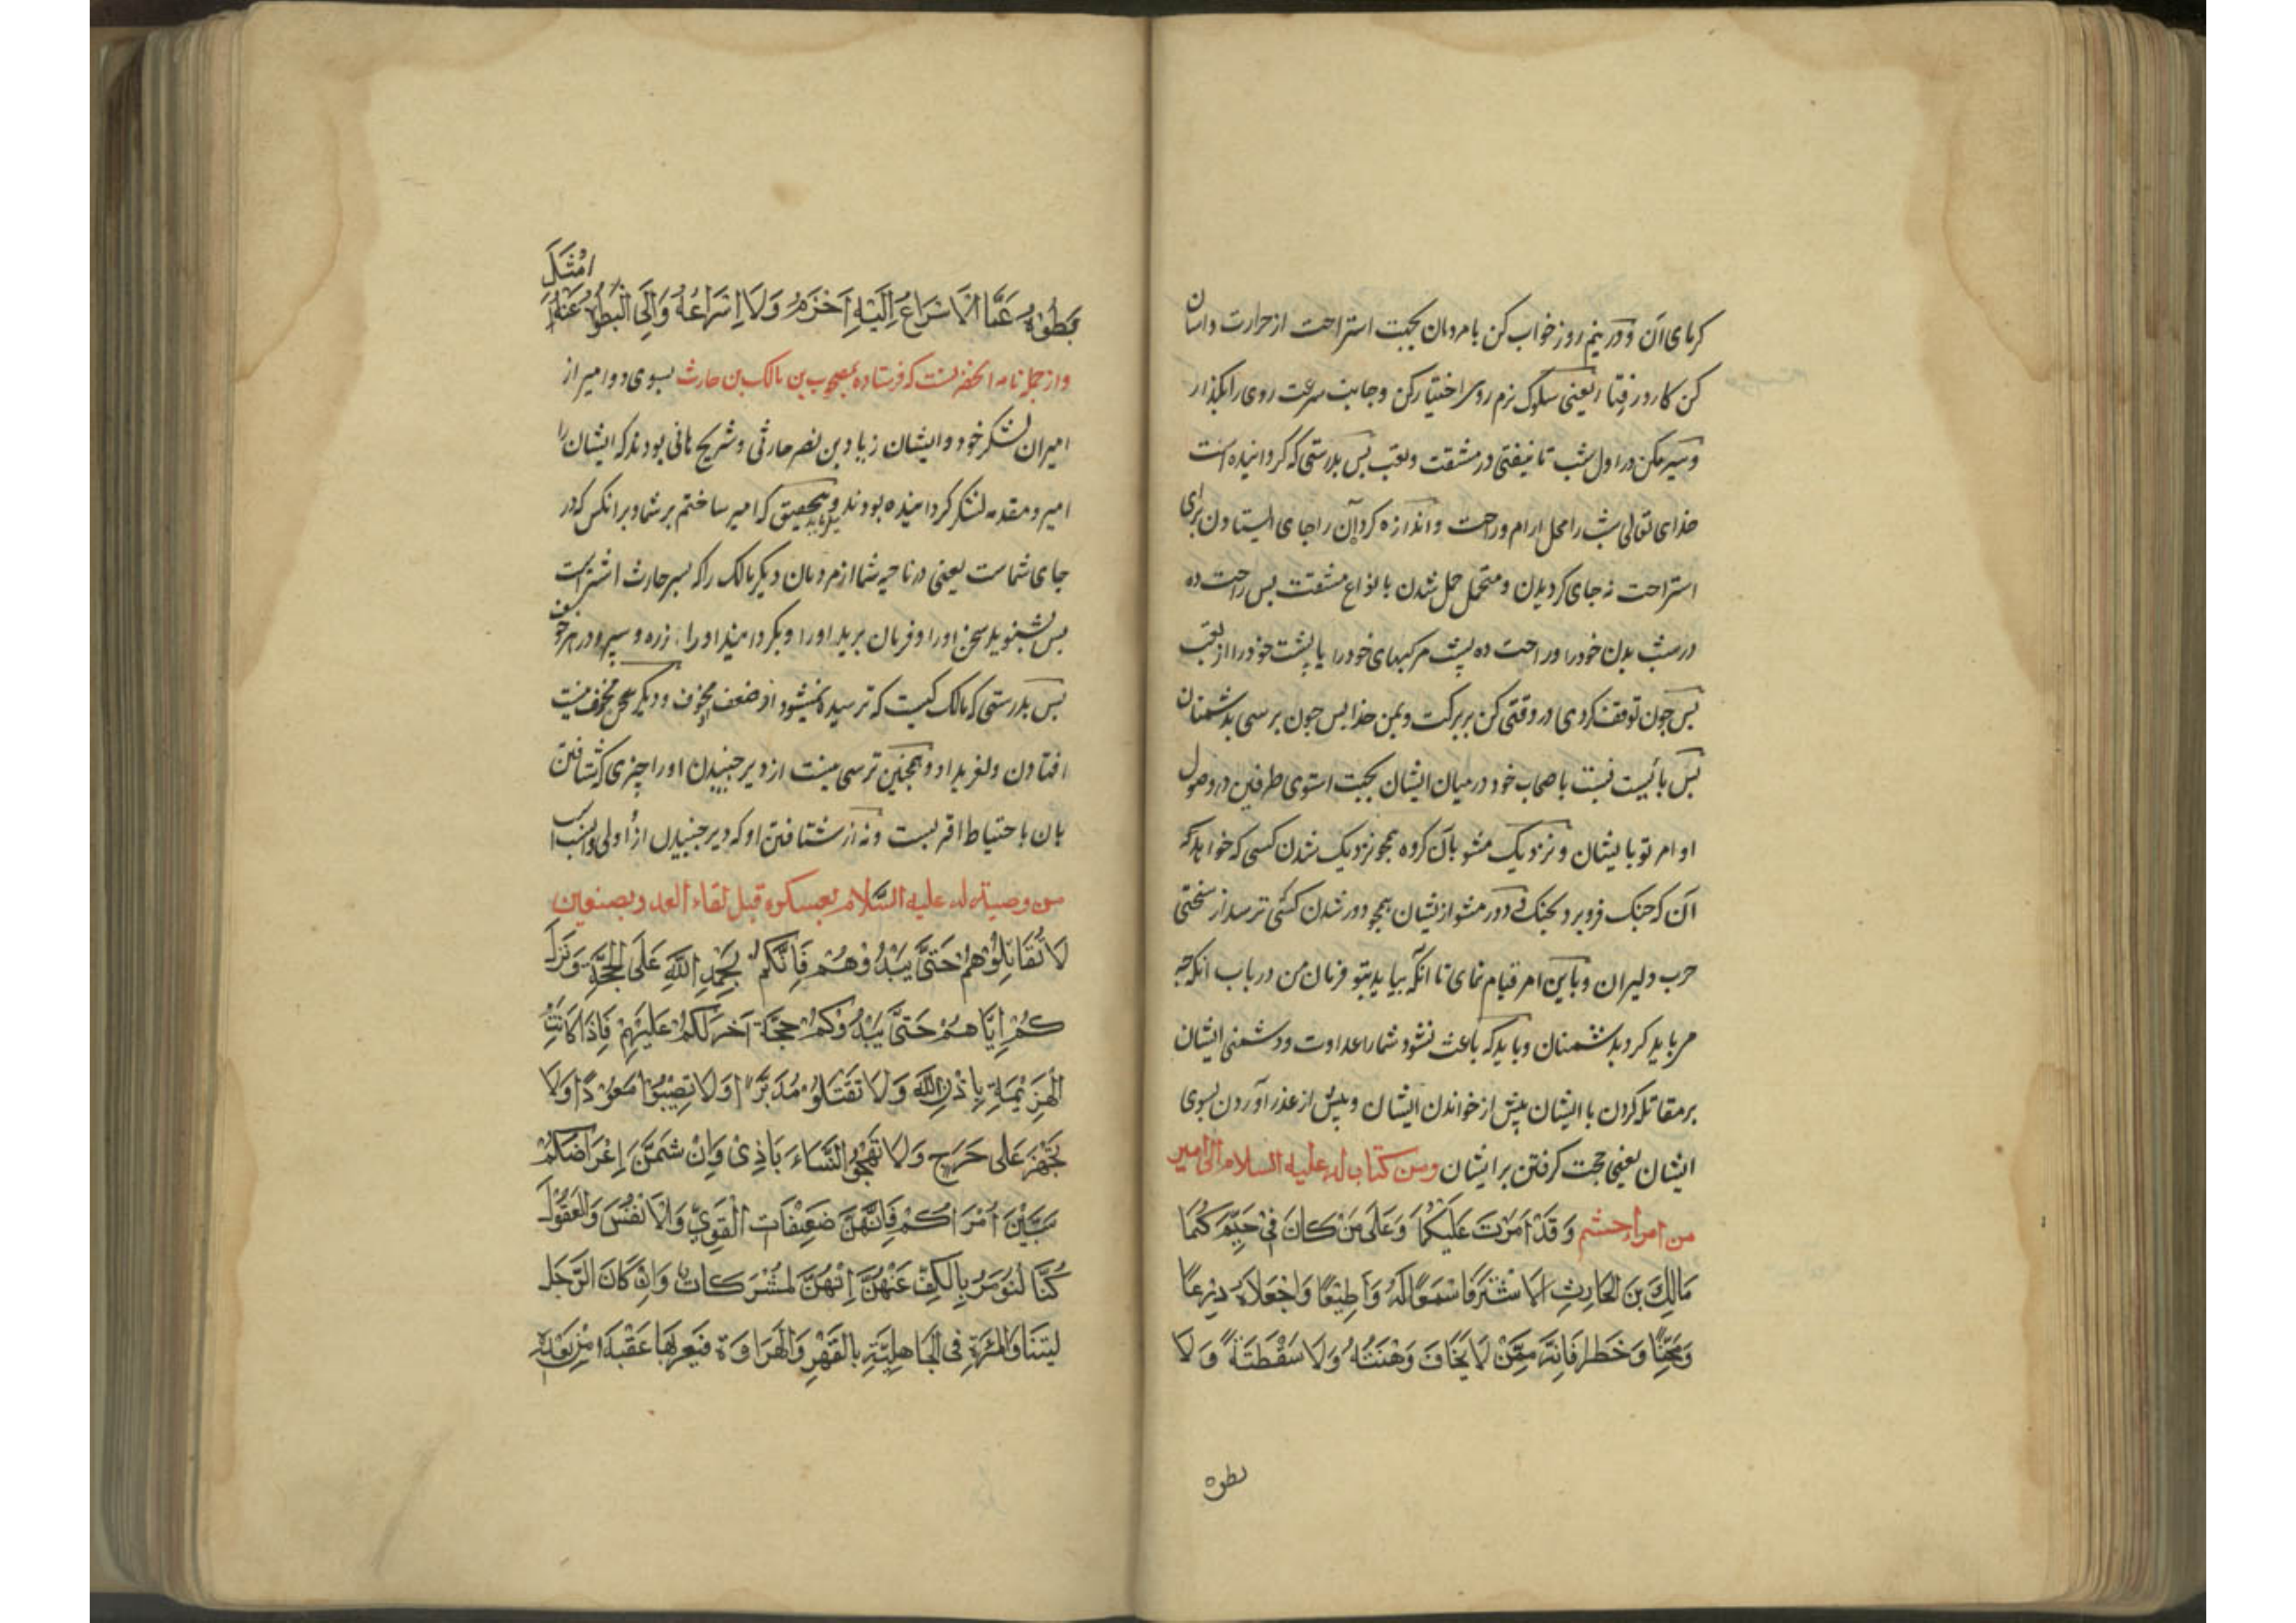 کرمای آن و در نیم روز خواب کن با مردمان بجهت استراحت از حرارت و اسان
کن کار در رفتار یعنی سلوک نرم روی اختیار کن و جانب سرعت روی را بگذار
و سیر مکن در اول شب تا نیفتی در مشقت و تعب پس بدرستی که گردانیده است
خدای تعالی شب را محل ارام و راحت و اندازه کرد آن را جای ایستادن برای
استراحت نه جای گردیدن و متحمل حمل شدن بانواع مشقت پس راحت ده
در شب بدن خود را و راحت ده پشت مرکبهای خود را یا پشت خود را از تعب
پس چون توقف کردی در وقتی کن بر برکت و یمن خدا پس چون برسی بدشمنان
پس بایست نسبت باصحاب خود در میان ایشان بجهت استوی طرفین در وصول
اوامر تو بایشان و نزدیک مشو بآن کروه همچو نزدیک شدن کسی که خواهد که
آن که جنک فرو برد بجنک و دور مشو از یشان همچو دور شدن کسی ترسد از سختی
حرب دلیران و باین امر قیام نمای تا انکه بیاید بتو فرمان من در باب انکه چه
مر باید کرد بدشمنان و باید که باعث نشود شما را عداوت و دشمنی ایشان
بر مقاتله کردن با ایشان پیش از خواندن ایشان و پیش از عذر آوردن بسوی
ایشان یعنی حجت کرفتن بر ایشان ومن کتاب له علیه السلام الی امیر
من امراء حشم وَقَدْ اَمَرْتَ عَلَیْکُمَا وَعَلَی مَنْ کَانَ فِی حَیِّزِکُمَا
مَالِکَ بْنَ الْحَارِثِ الاَشْتَرَ فَاسْمَعَا لَهُ وَاَطِیْعَا وَاجْعَلَاهُ دِرْعًا
وَمَجِنًّا وَخَطرا فَاِنَّهُ مِمَّنْ لَا یَخَافُ وَهْنَتُهُ وَلَا سَقْطَتَهُ وَلَا
بطوه
بَطُوْهُ عَمَّا الْاَسْرَاعُ اِلَیْهِ اَحْزَمُ وَلَا اِسْرَاعُهُ وَاِلَی الْبُطُوْءِ عَنْهُ
امْثَلَ
و از جمله نامه انحضرتست که فرستاده بمصحوب بن مالک بن حارث بسوی دو امیر از
امیران لشکر خود و ایشان زیاد بن نضر حارثی و شریح هانی بودند که ایشان را
امیر و مقدمه لشکر کردانیده بودند و میفرماید بتحقیق که امیر ساختم بر شما و بر انکس که در
جای شماست یعنی در ناحیه شما از مردمان دیکر مالک را که پسر حارث اشتر است
پس بشنوید سخن او را و فرمان برید او را و بکردانید او را زره و سپر در هر خوف
پس بدرستی که مالک کیست که ترسیده نمیشود از ضعف و دیکر محل مخوف نیست
افتادن و لغزید او و همچنین ترسی نیست از دیر جنبیدن او را چیزی که شتافتن
بان باحتیاط اقربست و نه از شتافتن او که دیر جنبیدن از اولی و انسب است
من وصیة له علیه السّلام بعسکره قبل لقاء العدو بصفین
لَا تُقَاتِلُوْهُمْ حَتَّی یَبْدُؤُهُمْ فَاِنَّکُمْ بِحَمْدِ اللّٰهِ عَلَی الْحُجَّةِ وَتَرْ
کُمْ اِیَّاهُمْ حَتَّی یَبْدُوْکُمْ حُجَّةً اَخَرَ لَکُمْ عَلَیْهِمْ فَاِذَا کَانَتِ
الْهَزِیْمَةِ بِاِذْنِ اللّٰهِ وَلَا تَقْتَلُوْ مُدْبِرً ا وَلَا تَصِیْبُوْا مَعُوْرًا وَلَا
تَجْهَزَ عَلَی جَرِیحٍ وَلَا تَهِیْجُوْ النِّسَاءَ بَاذِیً وَاِنْ شَتَمْنَ اِعْرَاضَکُمْ
سَبَبْنَ اُمَرَاکُمْ فَاِنَّهُنَّ ضَعِیْفَات الْقَوِیِّ وَالْاَنْفُسَ وَالْعُقُوْلَ
کُنَّا لَنُوْمَرُ بِالْکَفِّ عَنْهُنَّ اِنَّهُنَّ لَمُشْرِکَات وَاِنْ کَانَ الرَّجُل
لَیَتَنَاوَلُ الْمَرْءَةِ فِی الْجَاهِلِیَّةِ بِالْقَهْرِ وَالْهَرَاوَة فَیُعَیَّرُ بِهَا عَقْبَهُ مِنْ بَعْدِهِ